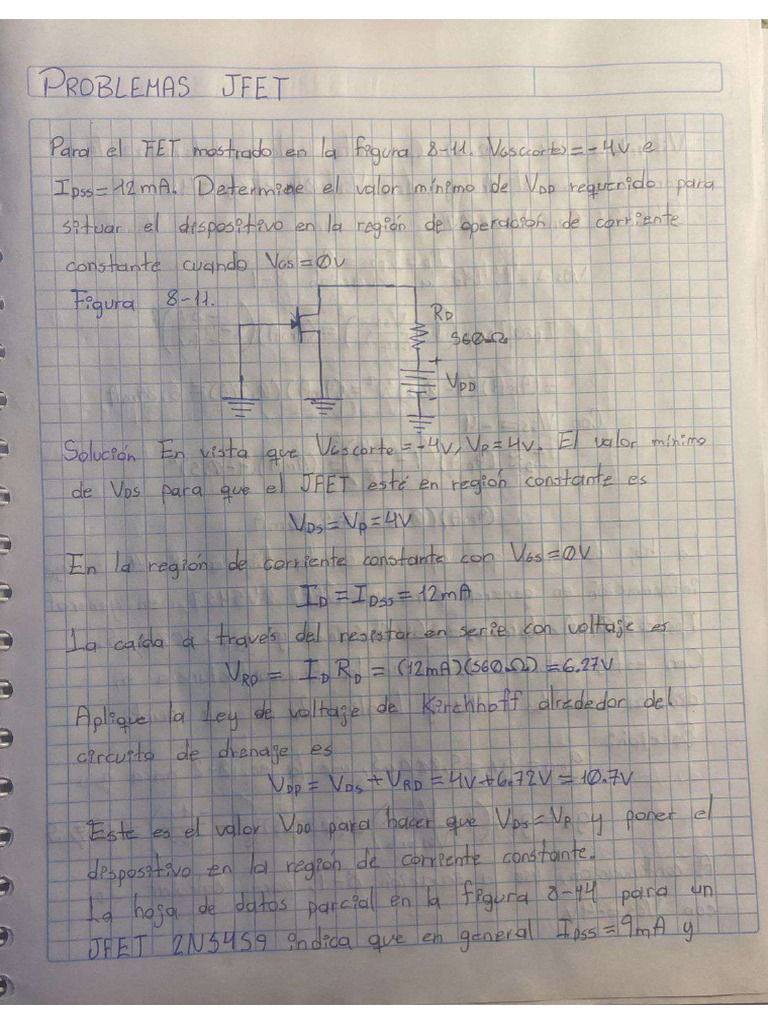 PROBLEMAS JFET
Para el FET mostrado en la figura 8-11. VGS(corte)=-4V e
IDSS=12mA. Determine el valor mínimo de VDD requerido para
situar el dispositivo en la región de operación de corriente
constante cuando VGS=0V
Figura 8-11.
RD
560Ω
+
VDD
-
Solución En vista que VGScorte=-4V, VP=4V. El valor mínimo
de VDS para que el JFET esté en región constante es
VDS=VP=4V
En la región de corriente constante con VGS=0V
ID=IDSS=12mA
La caída a través del resistor en serie con voltaje es
VRD= ID RD = (12mA)(560Ω) = 6.27V
Aplique la Ley de voltaje de Kirchhoff alrededor del
circuito de drenaje es
VDD= VDS+VRD = 4V+6.72V = 10.7V
Este es el valor VDD para hacer que VDS=VP y poner el
despositivo en la región de corriente constante.
La hoja de datos parcial en la figura 8-14 para un
JFET 2N5459 indica que en general IDSS=9mA y